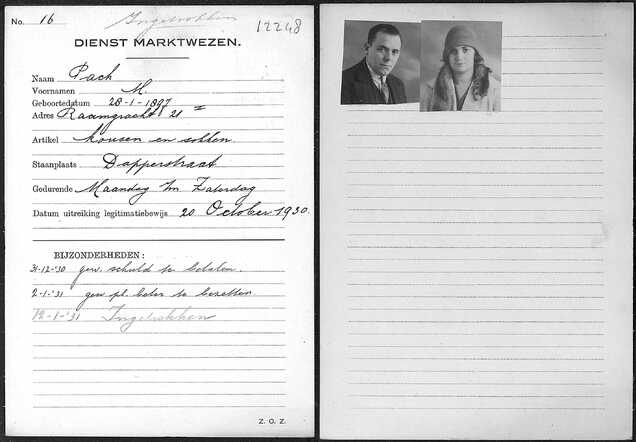 No. 16 Ingetrokken 12248
DIENST MARKTWEZEN.
Naam Pach
Voornamen M.
Geboortedatum 28-1-1897
Adres Raamgracht 21 II
Artikel kousen en sokken.
Staanplaats Dapperstraat
Gedurende Maandag t/m Zaterdag
Datum uitreiking legitimatiebewijs 20 October 1930.
BIJZONDERHEDEN:
31-12-'30 gew. schuld te betalen.
2-1-'31 gew. pl. beter te bezetten.
12-1-'31 Ingetrokken
Z. O. Z.